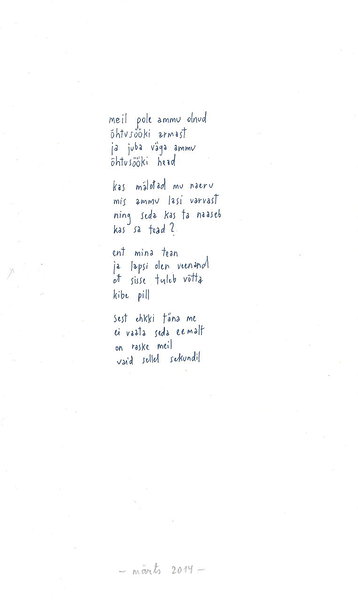 meil pole ammu olnud
õhtusööki armast
ja juba väga ammu
õhtusööki head
kas mäletad mu naeru
mis ammu lasi varvast
ning seda kas ta naaseb
kas sa tead?
ent mina tean
ja lapsi olen veenand
et sisse tuleb võtta
kibe pill
sest ehkki täna me
ei vaata seda eemalt
on raske meil
vaid sellel sekundil
– märts 2014 –